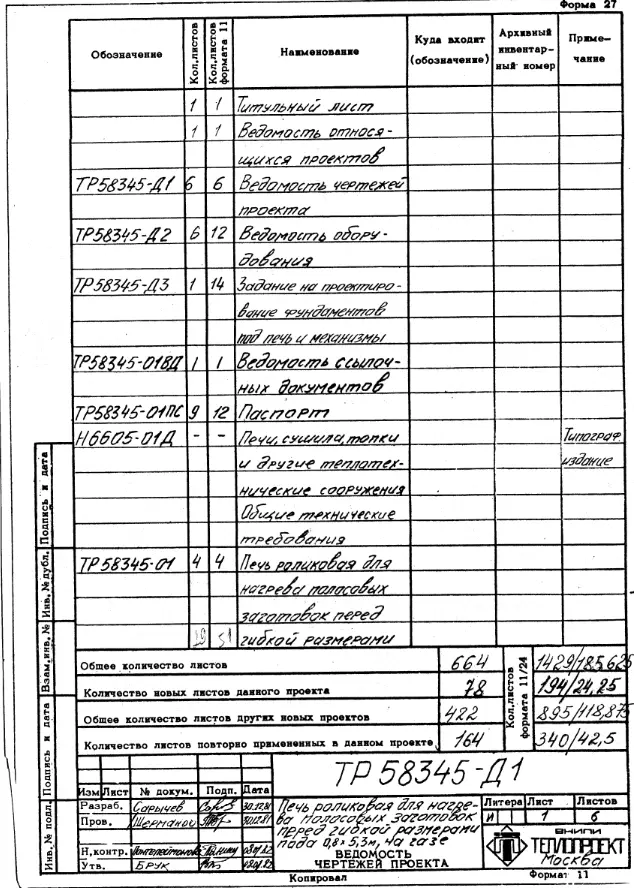 Форма 27
Обозначение Кол.листов Кол.листов формата 11 Наименование Куда входит (обозначение) Архивный инвентар-ный номер Приме-чание
1 1 Титульный лист
1 1 Ведомость относя-
щихся проектов
ТР58345-Д1 6 6 Ведомость чертежей
проекта
ТР58345-Д2 6 12 Ведомость обору-
дования
ТР58345-Д3 1 14 Задание на проектиро-
вание фундаментов
под печь и механизмы
ТР58345-01ВД 1 1 Ведомость ссылоч-
ных документов
ТР58345-01ПС 9 12 Паспорт
Н6605-01Д - - Печи, сушила, топки Типограф.
и другие теплотех- издание
нические сооружения
Общие технические
требования
ТР58345-01 4 4 Печь роликовая для
нагрева полосовых
заготовок перед
гибкой размерами
Общее количество листов 664 Кол.листов формата 11/24 1429/185,625
Количество новых листов данного проекта 78 194/24,25
Общее количество листов других новых проектов 422 895/118,875
Количество листов повторно примененных в данном проекте 164 340/42,5
Инв.№ подл. Подпись и дата Взам.инв.№ Инв.№ дубл. Подпись и дата
ТР 58345-Д1
Изм Лист № докум. Подп. Дата
Разраб. Сарычев 30.12.81
Пров. 30.12.81
Н.контр.
Утв. БРУК
Печь роликовая для нагре-
ва полосовых заготовок
перед гибкой размерами
пода 0,8×5,3м, на газе
ВЕДОМОСТЬ
ЧЕРТЕЖЕЙ ПРОЕКТА
Литера Лист Листов
И 1 6
ВНИПИ
ТЕПЛОПРОЕКТ
Москва
Копировал Формат 11